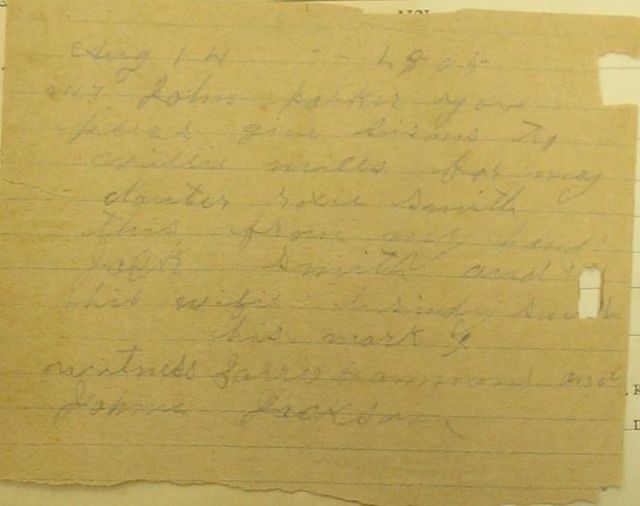 Aug 14 - - 1905
mr John parker you
pleas give lisons to
willie mills for my
douter rosie Smith
this from my hand
Jack Smith and
his wife Smith
his mark X
witness Hammond and
Johnie Jackson